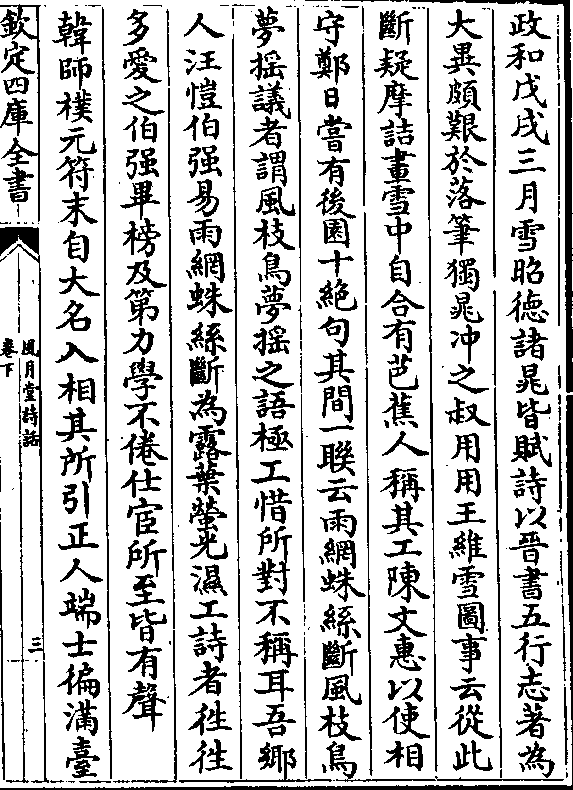 政和戊戌三月雪昭徳諸晁皆賦詩以晉書五行志著為
大異頗艱於落筆獨晁冲之叔用用王維雪圖事云從此
斷疑摩詰畫雪中自合有芭蕉人稱其工陳文惠以使相
守鄭日嘗有後園十絶句其間一聯云雨網蛛絲斷風枝鳥
夢揺議者謂風枝鳥夢揺之語極工惜所對不稱耳吾鄉
人汪愷伯强易雨網蛛絲斷為露葉螢光濕工詩者徃徃
多愛之伯强畢榜及第力學不倦仕宦所至皆有聲
韓師樸元符末自大名入相其所引正人端士徧滿臺
欽定四庫全書
風月堂詩話
卷下
三